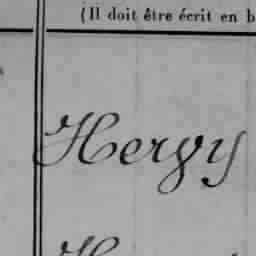 (Il doit être écrit en b
Hervy